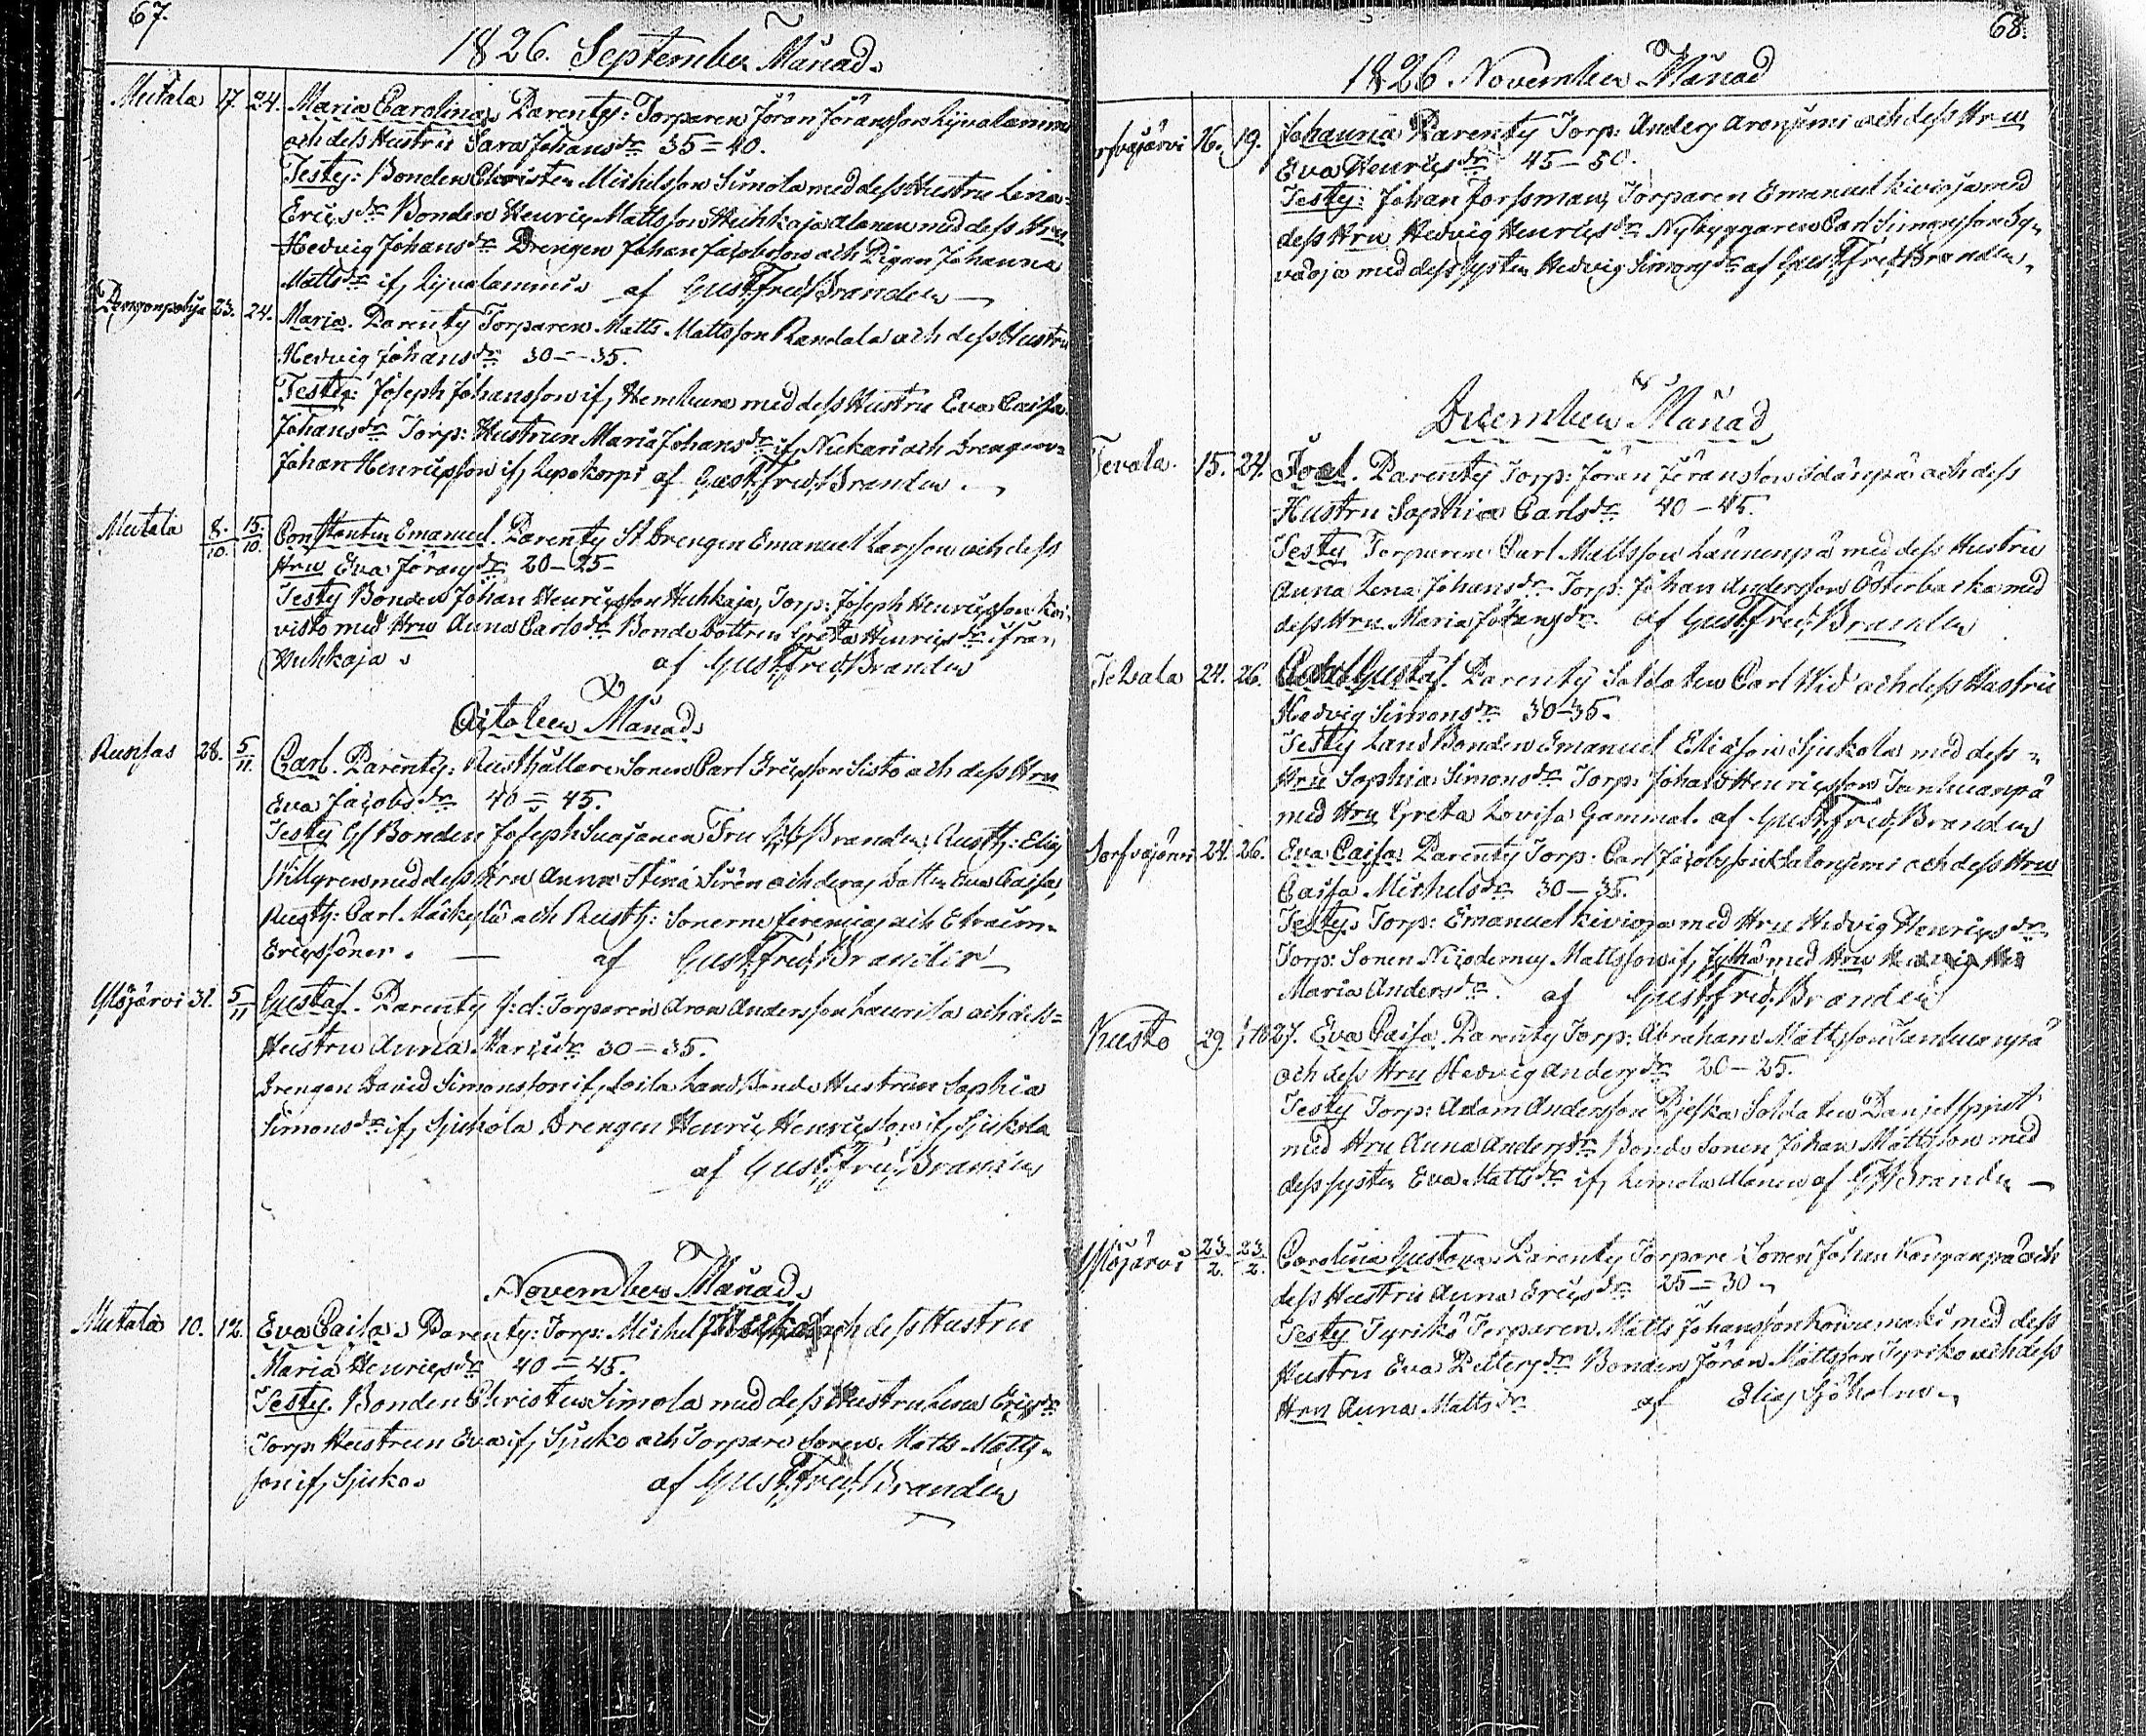 67.
1826. September Månad.
Mutala 17. 24. Maria Carolina, Parentes: Torparen Jöran Jöransson Lijvalammi
och dess Hustru Sara Johansdr 35=40.
Testes: Bonden Christer Michelsson Simola med dess Hustru Lena
Ericsdr Bonden Henric Mattsson Huhkaja Alanen med dess Hru
Hedvig Johansdr Drengen Johan Jacobsson och Pigan Johanna
Mattsdr ifr Lijvalammi af Gust. Fred. Brander
Pengonpohja 23. 24. Maria. Parentes Torparen Matts Mattsson Randala och dess Hustru
Hedvig Johansdr 30--35.
Testes: Joseph Johansson ifr med dess Hustru Eva Caisa
Johansdr Torp: Hustrun Maria Johansdr ifr och Drengen
Johan Henricsson ifr Lepokorpi af Gust. Fred. Brander
Mutala 8./10. 15./10. Constantin Emanuel. Parentes St. Drengen Emanuel Larsson och dess
Hru Eva Jöransdr 20-25-
Testes Bonden Johan Henricsson Huhkaja, Torp: Joseph Henricsson Koi-
visto med Hru Anna Carlsdr Bonde Dottren Greta Henricsdr ifrån
Huhkaja. af Gust. Fred. Brander
October Månad.
Runsas 28. 5/11. Carl. Parentes: Rusthållare Sonen Carl Ericsson Sisto och dess Hru
Eva Jacobsdr 40=45.
Testes Bonden Joseph Fru Brander, Rusth: Elias
Hillgren med dess Hru Anna Stina Sirén och deras Dotter Eva Caisa,
Rusth: Carl Mäckylä och Rusth: Sonerne Jeremias och Efraim
Ericssöner. af Gust. Fred. Brander
Ylöjärvi 31. 5/11 Gustaf. Parentes f: d: Torparen Aron Andersson Laurila och dess
Hustru Anna Marcusdr 30=35.
Drengen David Simonsson ifr Soila Landbonde Hustrun Sophia
Simonsdr ifr Sjukola Drengen Henric Henricsson ifr Sjukola
af Gust. Fred. Brander
November Månad.
Mutala 10. 12. Eva Caisa. Parentes: Torp: Michel och dess Hustru
Maria Henricsdr 40=45.
Testes. Bonden Christer Simola med dess Hustru Lena Ericsdr
Torp: Hustrun Eva ifr Sjuko och Torpare Sonen Matts Matts-
son ifr Sjuko. af Gust. Fred. Brander
68.
1826 November Månad
16. 19. Johanna Parentes Torp: Anders Aronsimi och dess Hru
Eva Henricsdr 45-50.
Testes: Johan Forssman, Torparen Emanuel Kivioja med
dess Hru Hedvig Henricsdr Nybyggaren Carl Simonsson Sy-
väoja med dess Syster Hedvig Simonsdr af Gust. Fred. Brander.
December Månad
Tevala 15. 24. Joel. Parentes Torp: Jöran Jöransson Idänpä och dess
Hustru Sophia Carlsdr 40-45.
Testes Torparen Carl Mattsson Lännenpä med dess Hustru
Anna Lena Johansdr Torp: Johan Andersson Österbacka med
dess Hru Maria Jöransdr. af Gust. Fred. Brander
24. 26. Gustaf. Parentes Soldaten Carl Hid och dess Hustru
Hedvig Simonsdr 30-35.
Testes Landbonden Emanuel Eliasson Sjukola med dess
Hru Sophia Simonsdr Torp: Johan Henricsson Tanhuanpä
med Hru Greta Lovisa Gammal. af Gust. Fred. Brander
24. 26. Eva Caisa Parentes Torp: Carl Jacobsson Salonsimi och dess Hru
Caisa Michelsdr 30-35.
Testes Torp: Emanuel Kivioja med Hru Hedvig Henricsdr
Torp: Sonen Nicodemus Mattsson ifr med Hru
Maria Andersdr. af Gust. Fred. Brander
Kusto 29. 1/1827. Eva Caisa. Parentes Torp: Abraham Mattsson Tanhuanpä
och dess Hru Hedvig Andersdr 20-25.
Testes Torp: Adam Andersson Soldaten Daniel Spjut
med Hru Anna Andersdr Bonde Sonen Johan Mattsson med
dess syster Eva Mattsdr ifr Alanen af G F Brander
Ylöjärvi 23./2. 23./2. Carolina Gustava. Parentes Torpare Sonen Johan Kanganpä och
dess Hustru Anna Ericsdr 25=30
Testes Tyrikö Torparen Matts Johansson Koivumäki med dess
Hustru Eva Pettersdr Bonden Jöran Mattsson Tyrikö och dess
Hru Anna Mattsdr af Elias Sjöholm.